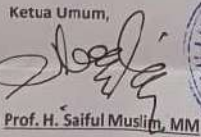 Ketua Umum,
Prof. H. Saiful Muslim, MM